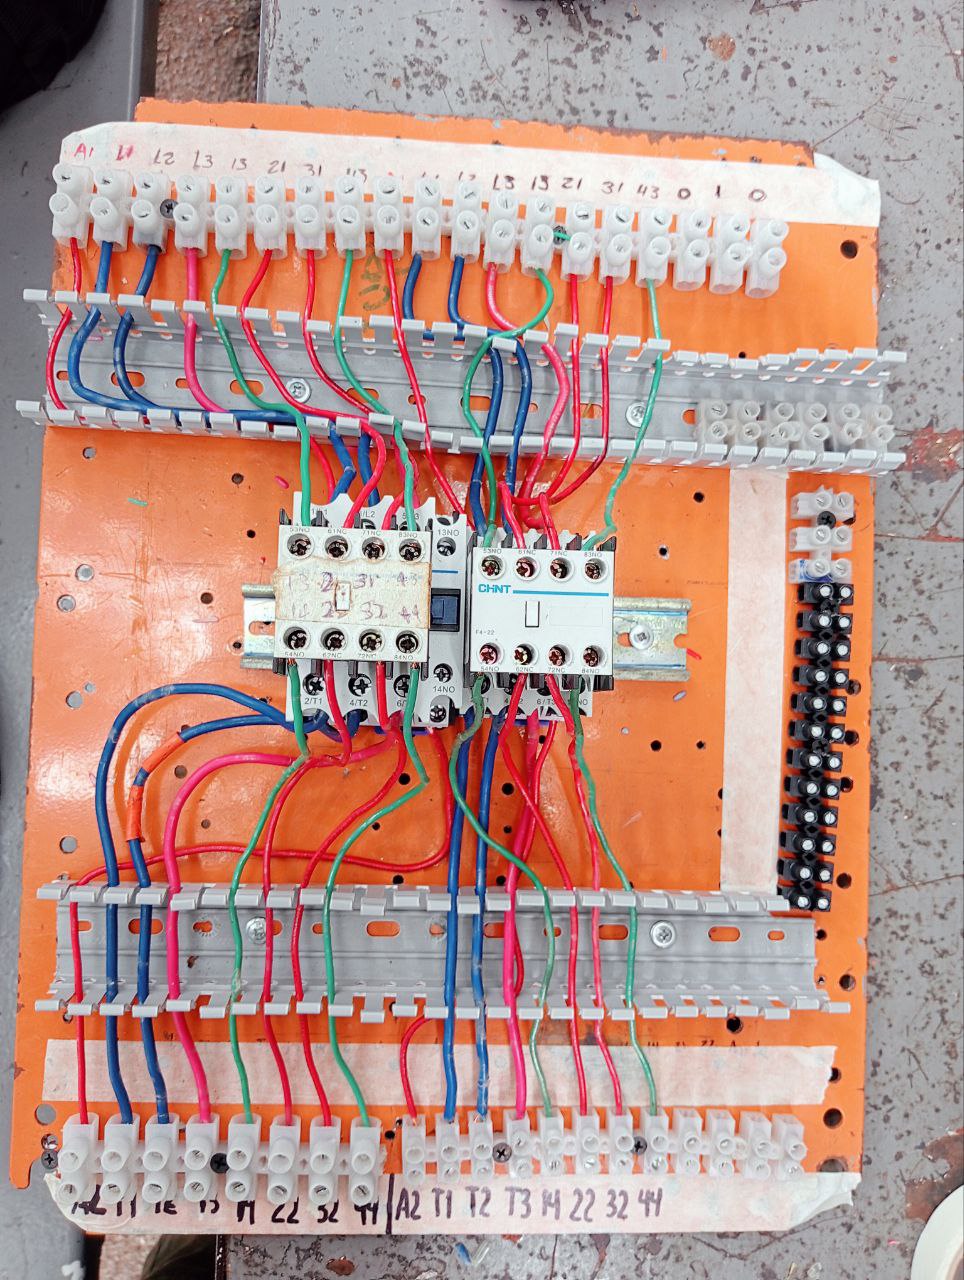 A1 L1 L2 L3 13 21 31 43 A1 L1 L2 L3 13 21 31 43 0 1 0
/L2 5/L3
53NO 61NC 71NC 83NO 13NO
13 2 31 43
32 44
54NO 62NC 72NC 84NO
14NO
2/T1 4/T2 6/
53NO 61NC 71NC 83NO
CHNT
F4-22
54NO 62NC 72NC 84NO
6/T3 NO
A2 T1 T2 T3 14 22 32 44 A2 T1 T2 T3 14 22 32 44